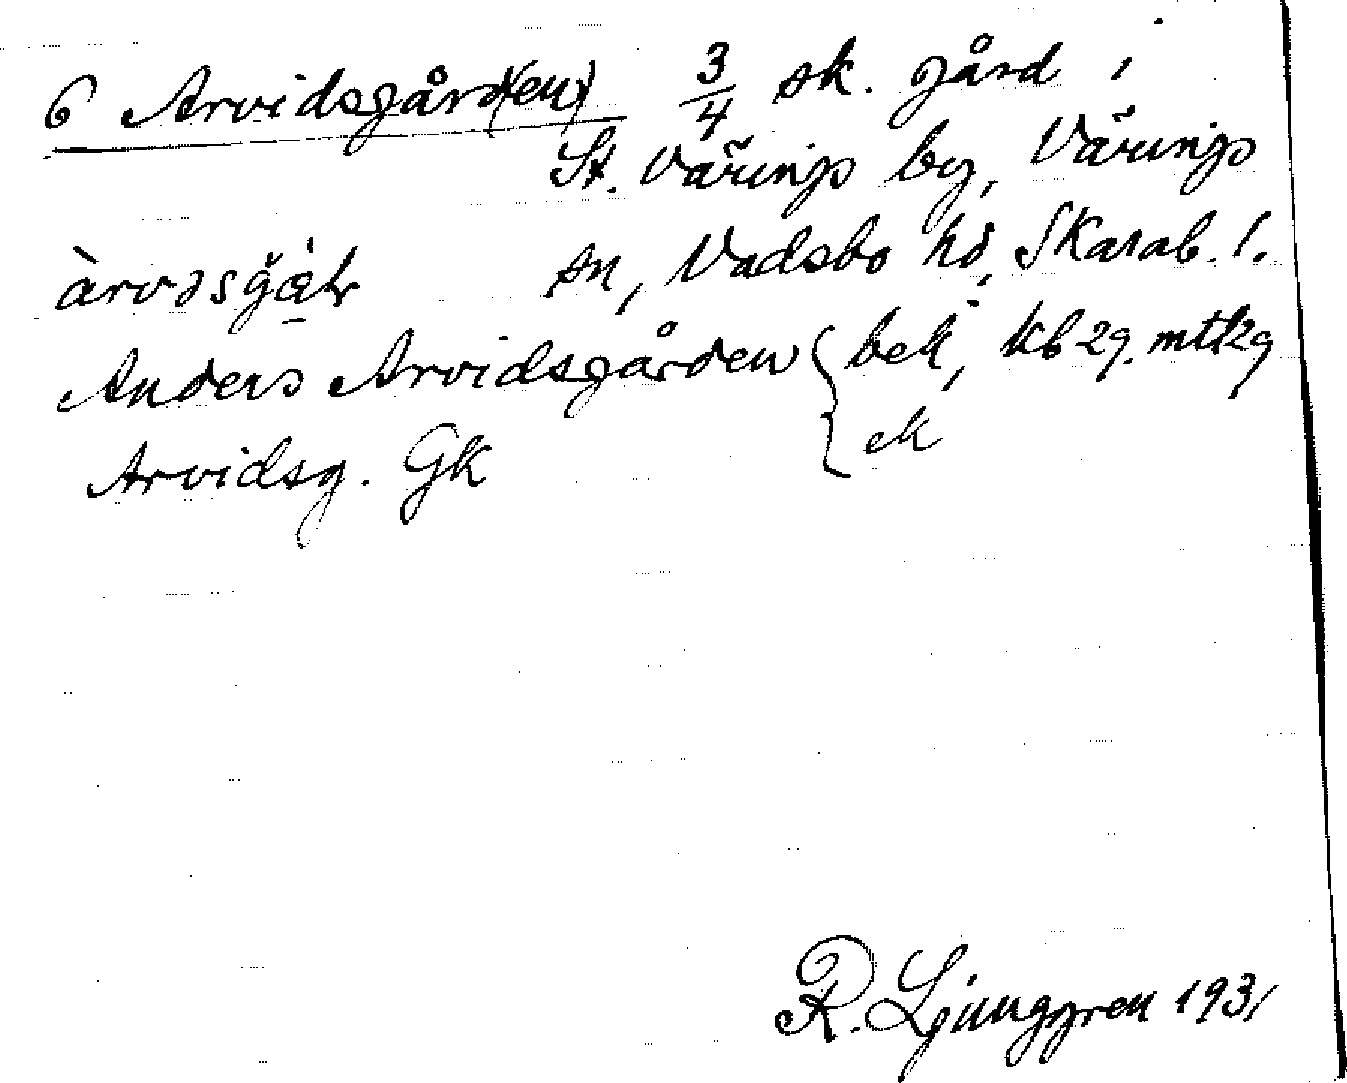 6 Arvidsgård(en) 3/4 sk. gård i
St. Värings by, Värings
sn, Vadsbo hd, Skarab. l.
Anders Arvidsgården { bek, kb 2g. mtl 2g
Arvidsg. Gk { ek
R. Ljunggren 1931